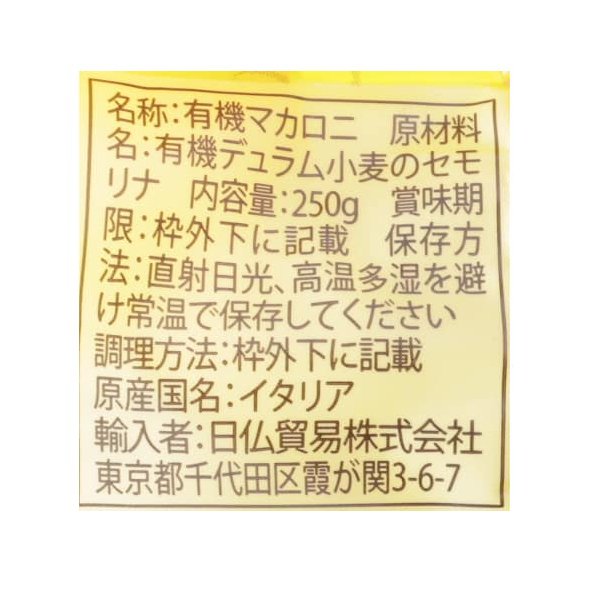 名称：有機マカロニ　原材料
名：有機デュラム小麦のセモ
リナ　内容量：250g　賞味期
限：枠外下に記載　保存方
法：直射日光、高温多湿を避
け常温で保存してください
調理方法：枠外下に記載
原産国名：イタリア
輸入者：日仏貿易株式会社
東京都千代田区霞が関3-6-7